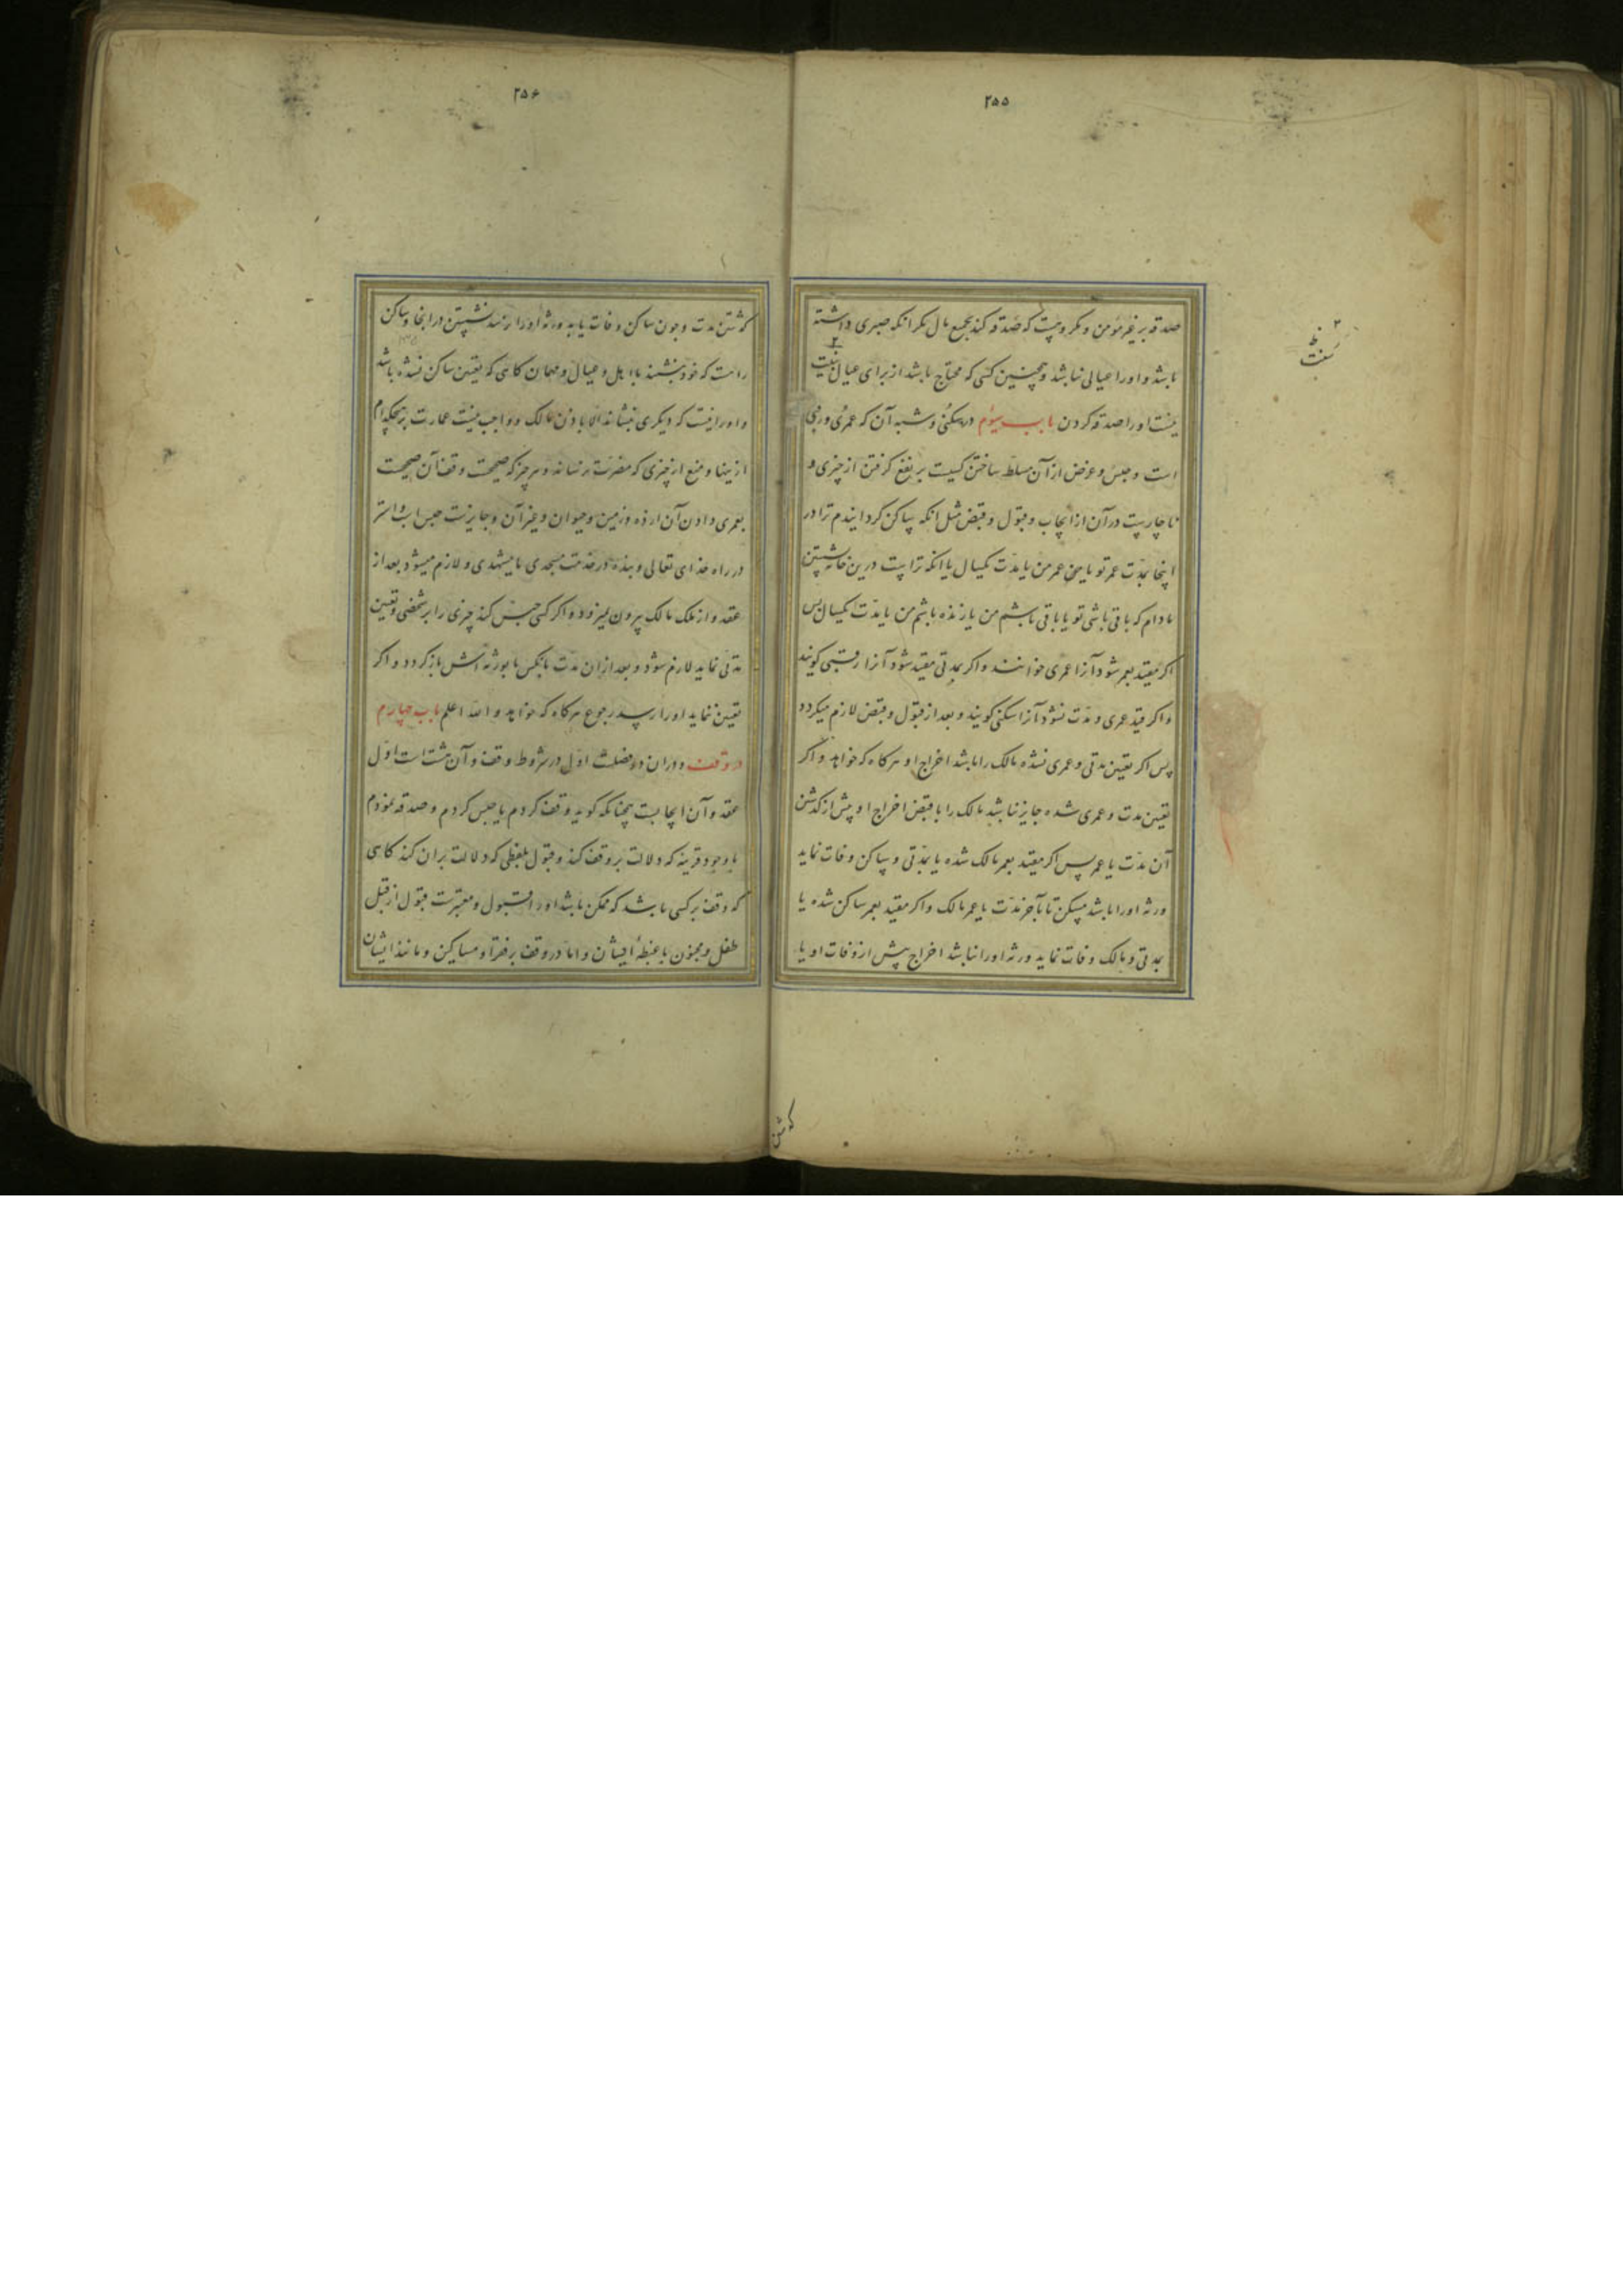 ۲۵۵
صدقه بر غیر مؤمن و مکروهست که صدقه کند بجمیع مال مکر انکه صبری داشته
باشد و اورا عیالی نباشد و همچنین کسی که محتاج باشد از برای عیال
نیست اورا صدقه کردن باب سیوم در سکنی و شبه آن که عمری و رقبی
است و حبس و غرض از آن مسلط ساختن کسیست بر نفع کرفتن از چیزی و
ناچارست در آن از ایجاب و قبول و قبض مثل انکه ساکن کردانیدم ترا در
اینجا بمدّت عمر تو یا عمر من یا مدّت یکسال یا انکه تراست درین خانه نشستن
مادام که باقی باشی تو یا باقی باشم من یا زنده باشم من یا مدّت یکسال پس
اکر مقید بعمر شود آنرا عمری خوانند و اکر بمدتی مقید شود آنرا رقبی کویند
و اکر قید عمری و مدّت نشود آنرا سکنی کویند و بعد از قبول و قبض لازم میکردد
پس اکر تعیین مدتی و عمری نشده مالک را باشد اخراج او هرکاه که خواهد و اکر
تعیین مدت و عمری شده جایز نباشد مالک را با قبض اخراج او پیش از کذشتن
آن مدّت یا عمر پس اکر مقید بعمر مالک شده یا بمدّتی و ساکن وفات نماید
ورثه اورا باشد مسکن تا بآخر مدّت یا عمر مالک و اکر مقید بعمر ساکن شده یا
بمدتی و مالک وفات نماید ورثه اورا نباشد اخراج پیش از وفات او یا
۲۵۶
کذشتن مدت و چون ساکن وفات یابد ورثه اورا نرسد نشستن در اینجا و ساکن
راست که خود بنشیند با اهل و عیال و مهمان کاهی که تعیین ساکن نشده باشد
و اورا نیست که دیکری بنشاند الا باذن مالک و واجب نیست عمارت بر هیچکدام
ازینها و منع از چیزی که مضرت رساند و هر چیز که صحیحست وقف آن صحیحست
بعمری دادن آن از ده و زمین و حیوان و غیر آن و جایزست حبس اسب و استر
در راه خدای تعالی و بنده در خدمت مسجدی یا مشهدی و لازم میشود بعد از
عقد و از ملک مالک بیرون نمیرود و اکر کسی حبس کند چیزی را بر شخصی و تعیین
مدتی نماید لازم شود و بعد از ان مدت بانکس یا بورثه اش باز کردد و اکر
تعیین ننماید اورا رسد رجوع هرکاه که خواهد و الله اعلم باب چهارم
در وقف و در ان دو فصلست اوّل در شروط وقف و آن هشت است اوّل
عقد و آن ایجابست چنانکه کوید وقف کردم یا حبس کردم و صدقه نمودم
با وجود قرینه که دلالت بر وقف کند و قبول بلفظی که دلالت بر ان کند کاهی
که وقف بر کسی باشد که ممکن باشد اورا قبول و معتبرست قبول از قبل
طفل و مجنون با غبطهٔ ایشان و اما در وقف بر فقرا و مساکین و مانند ایشان